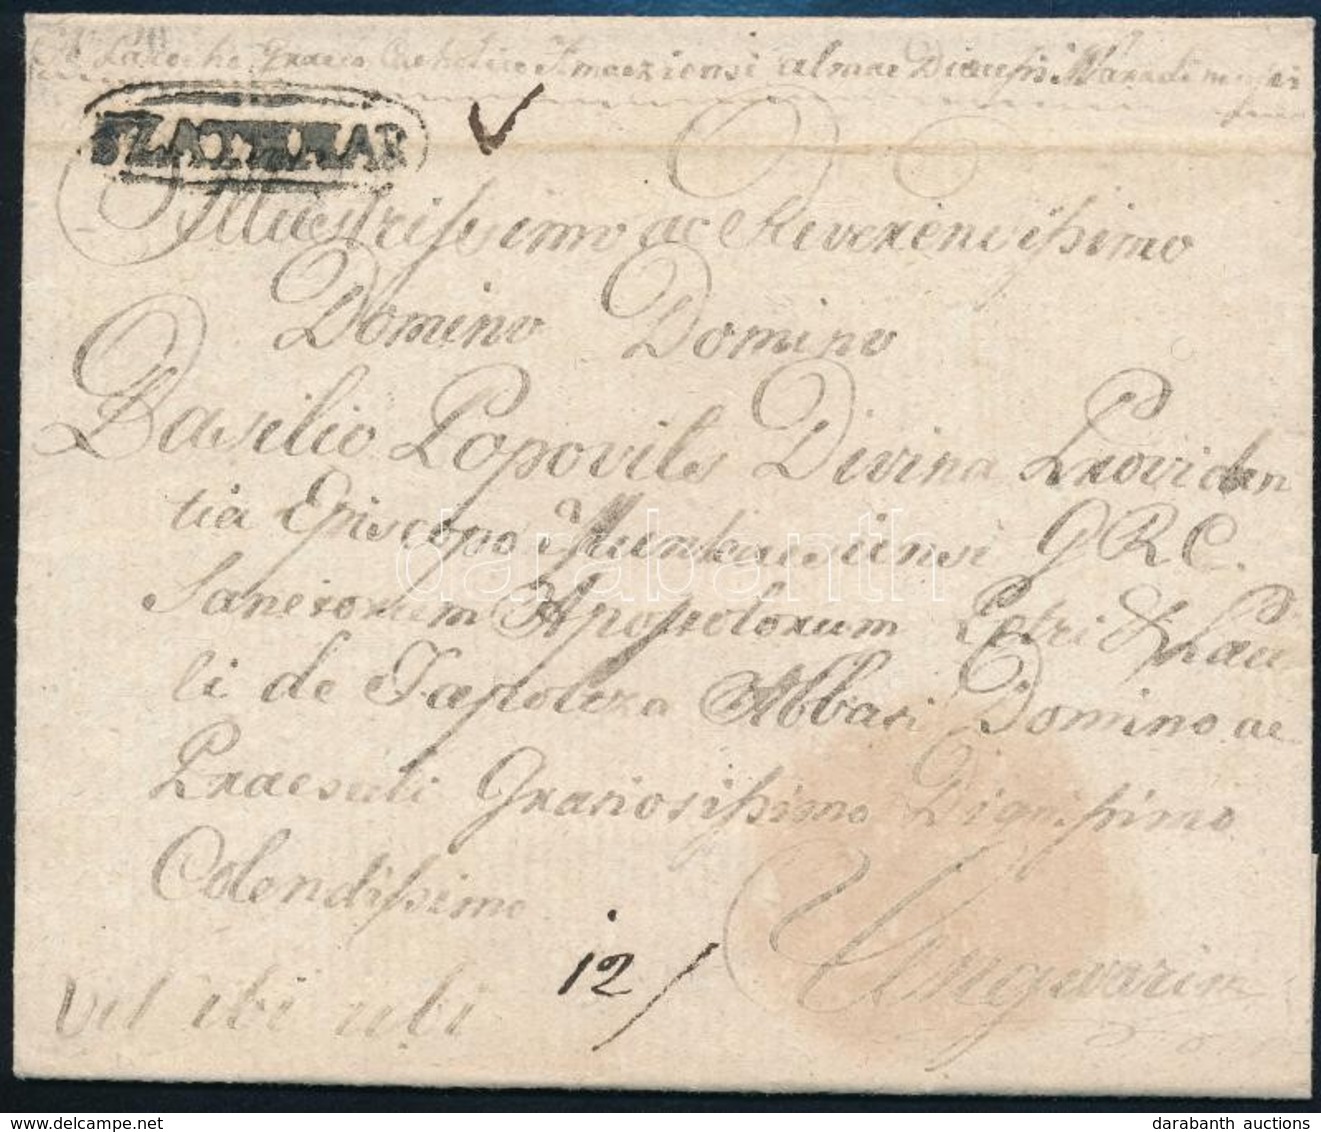 Parocho Graeco Catholico almae Dioecesis
SZATHMAR
Illustrissimo ac Reverendissimo
Domino Domino
Basilio Popovits Divina Providen
tia Episcopo Munkacsiensi G R C.
Sanctorum Apostolorum Petri & Pau
li de Tapolcza Abbati Domino ac
Praesuli Gratiosissimo Dignissimo
Colendissimo
12
Ungvarini
Vel ibi ubi
darabanth
darabanth auctions